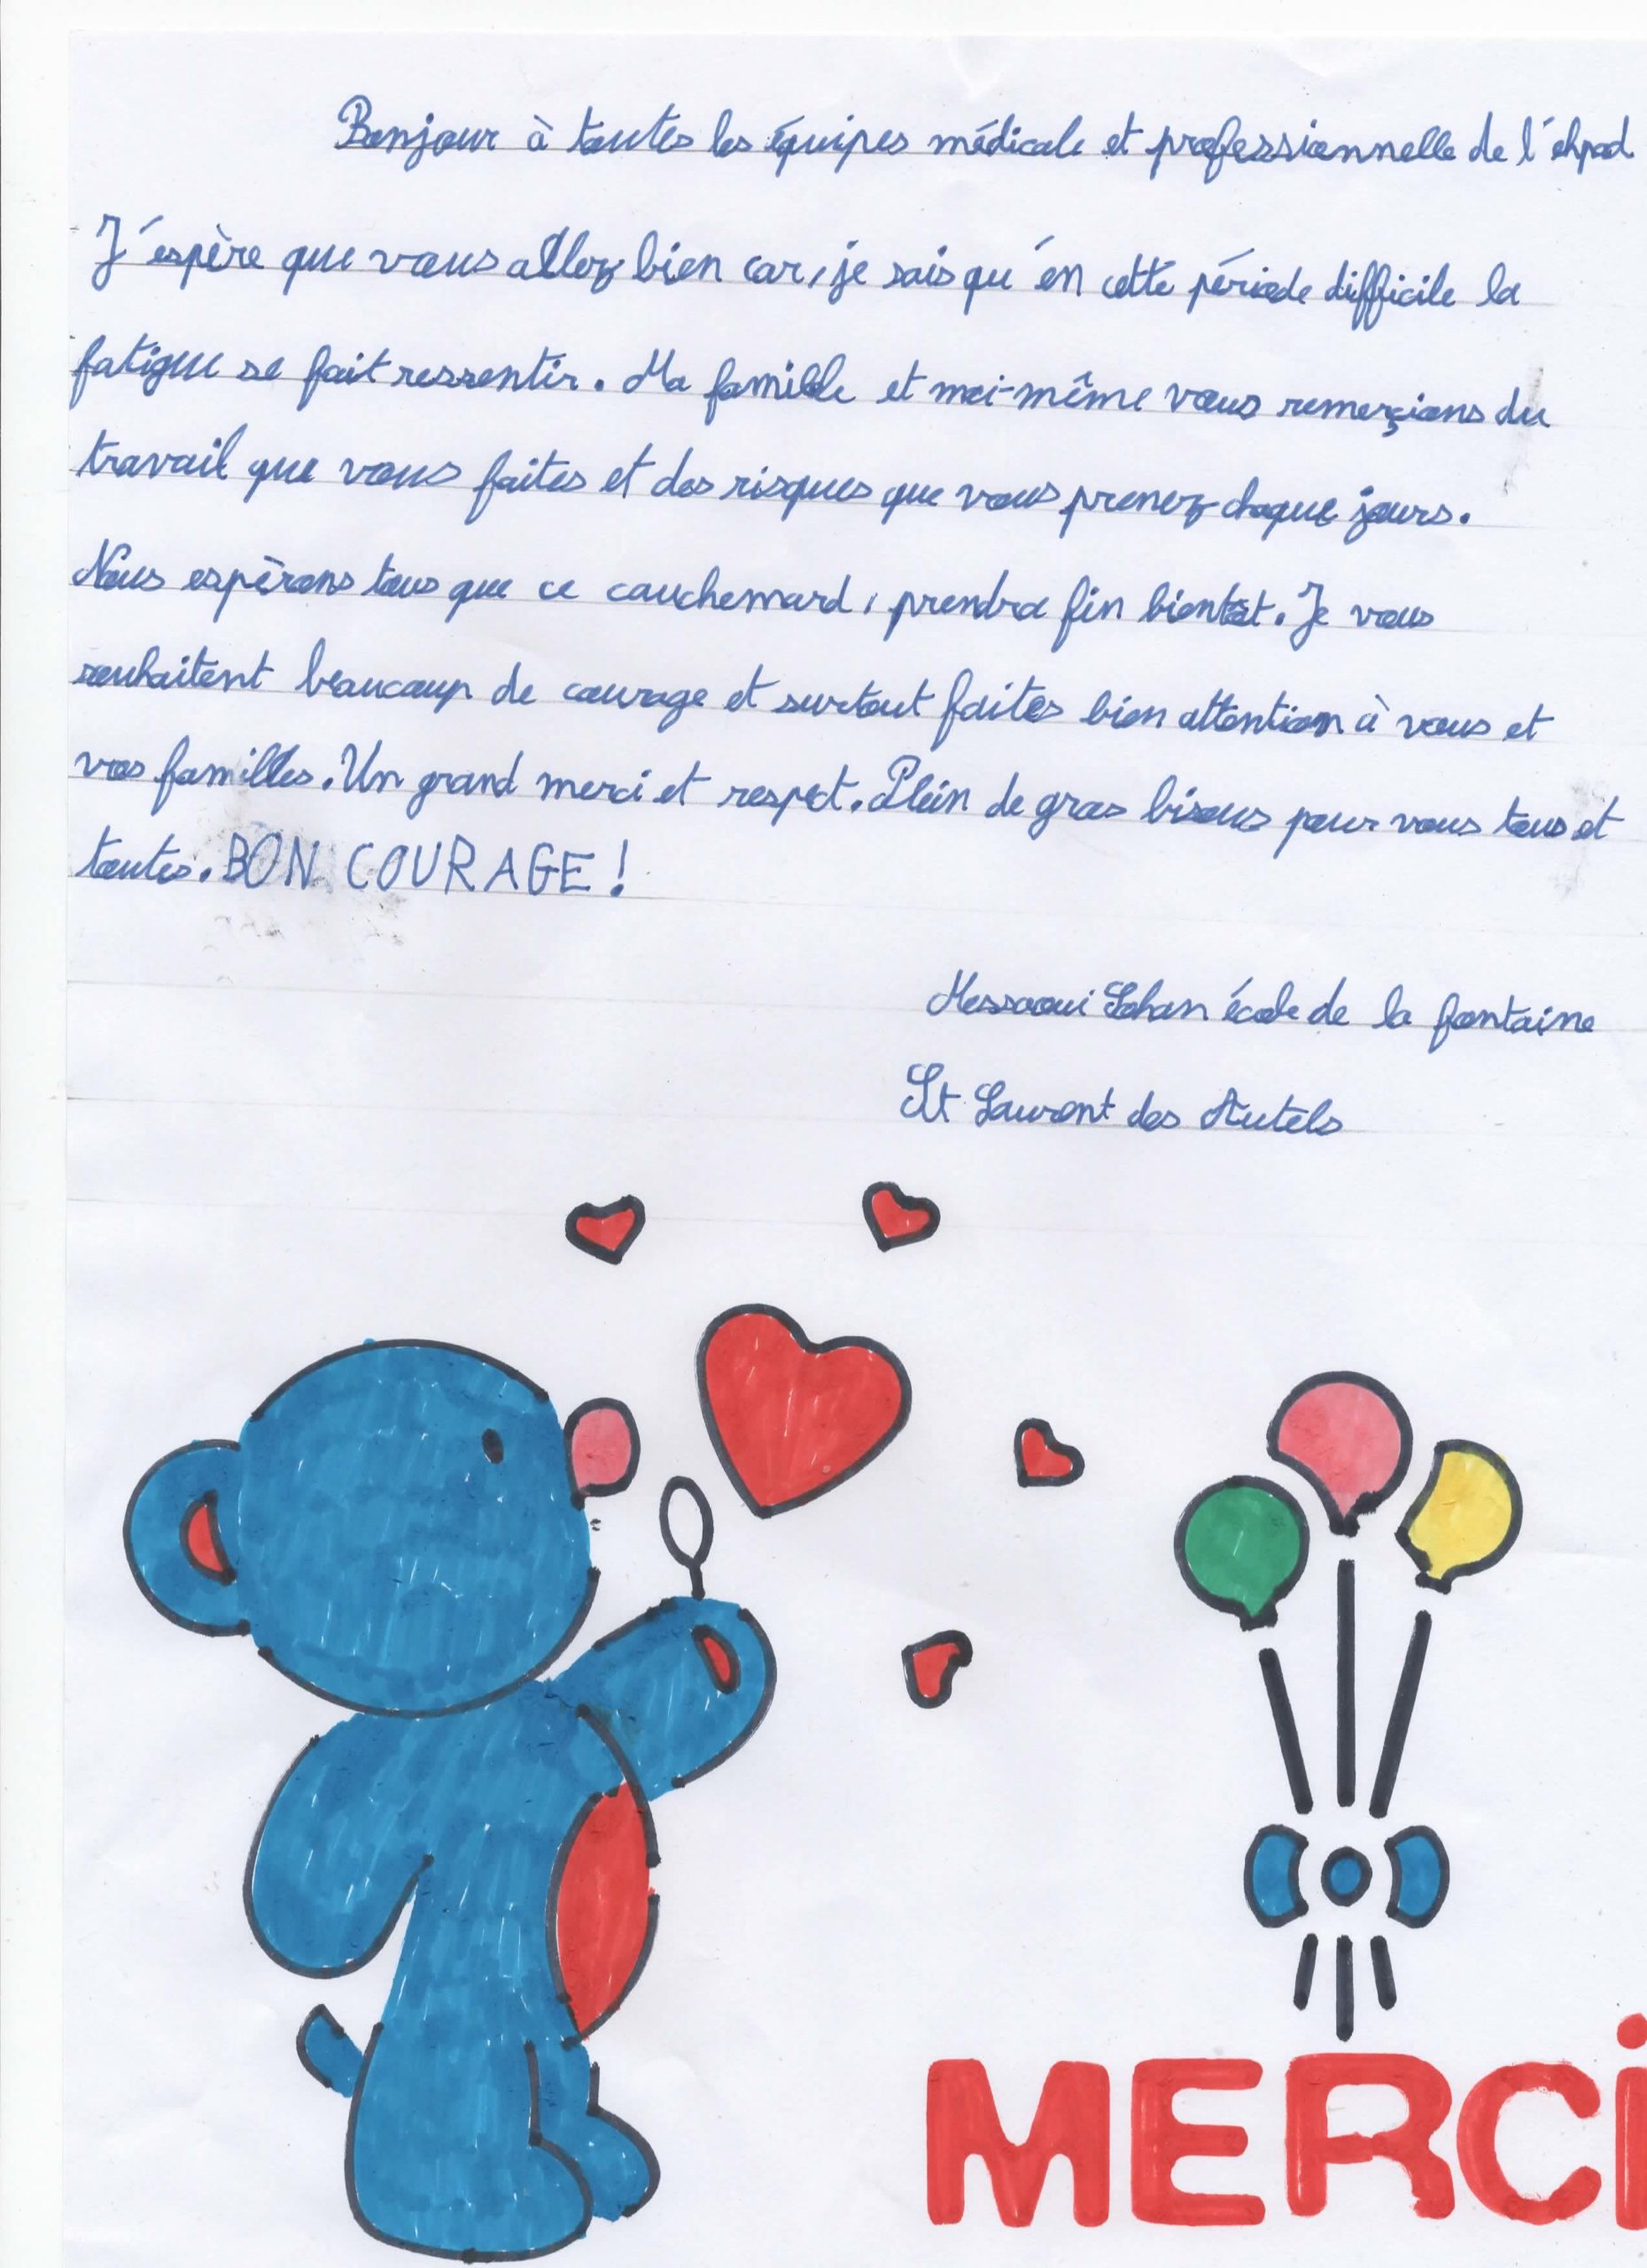 Bonjour à toutes les équipes médicale et professionnelle de l'éhpad
J'espère que vous allez bien car, je sais qu'en cette période difficile la
fatigue se fait ressentir. Ma famille et moi-même vous remerçions du
travail que vous faites et des risques que vous prenez chaque jours.
Nous espèrons tous que ce cauchemard, prendra fin bientôt. Je vous
souhaitent beaucoup de courage et surtout faites bien attention à vous et
vos familles. Un grand merci et respect. Plein de gros bisous pour vous tous et
toutes. BON COURAGE !
Messaoui Lohan école de la fontaine
St Laurent des Autels
MERCi